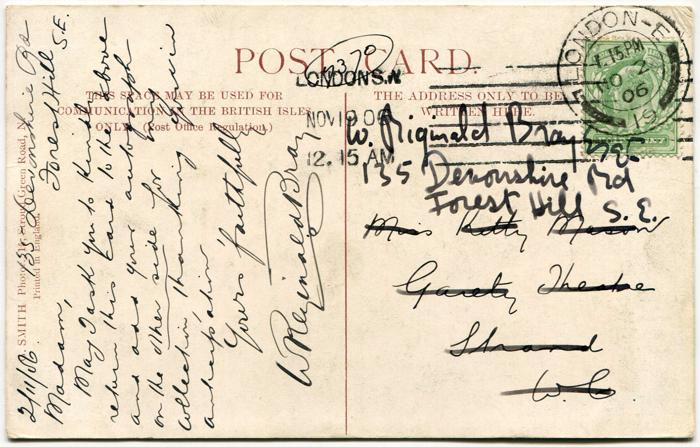 POST CARD.
THIS SPACE MAY BE USED FOR
COMMUNICATION IN THE BRITISH ISLES
ONLY. (Post Office Regulation.)
THE ADDRESS ONLY TO BE
WRITTEN HERE.
4370
LONDON S.W
NOV 19 06
12.15 AM
LONDON-E
1.15 PM
NO 2
06
19
135 Devonshire Rd
Forest Hill
S.E.
2/11/06.
Madam,
May I ask you to kindly
return this card to the above
and add your autograph
on the other side for my
collection. Thanking you in
Yours faithfully
W Reginald Bray
W. Reginald Bray Esq
135 Devonshire Rd
Forest Hill S.E.
Miss Kitty Mason
Gaiety Theatre
Strand
W.C.
Green Road, N.
Printed in England.